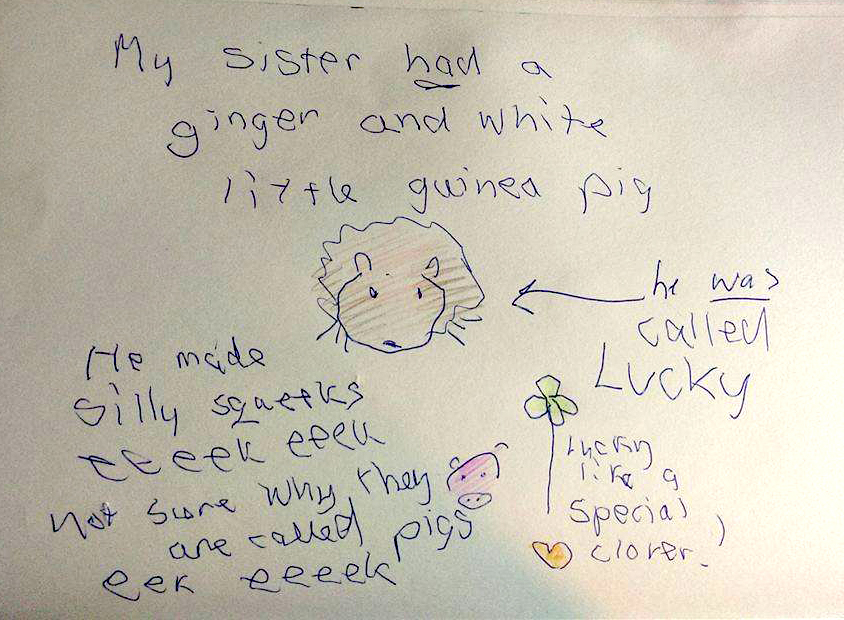 My sister had a
ginger and white
little guinea pig
he was
called
Lucky
He made
silly squeeks
eeeek eeek
not sure why they
are called pigs
eek eeeek
lucky
like a
special
clover!